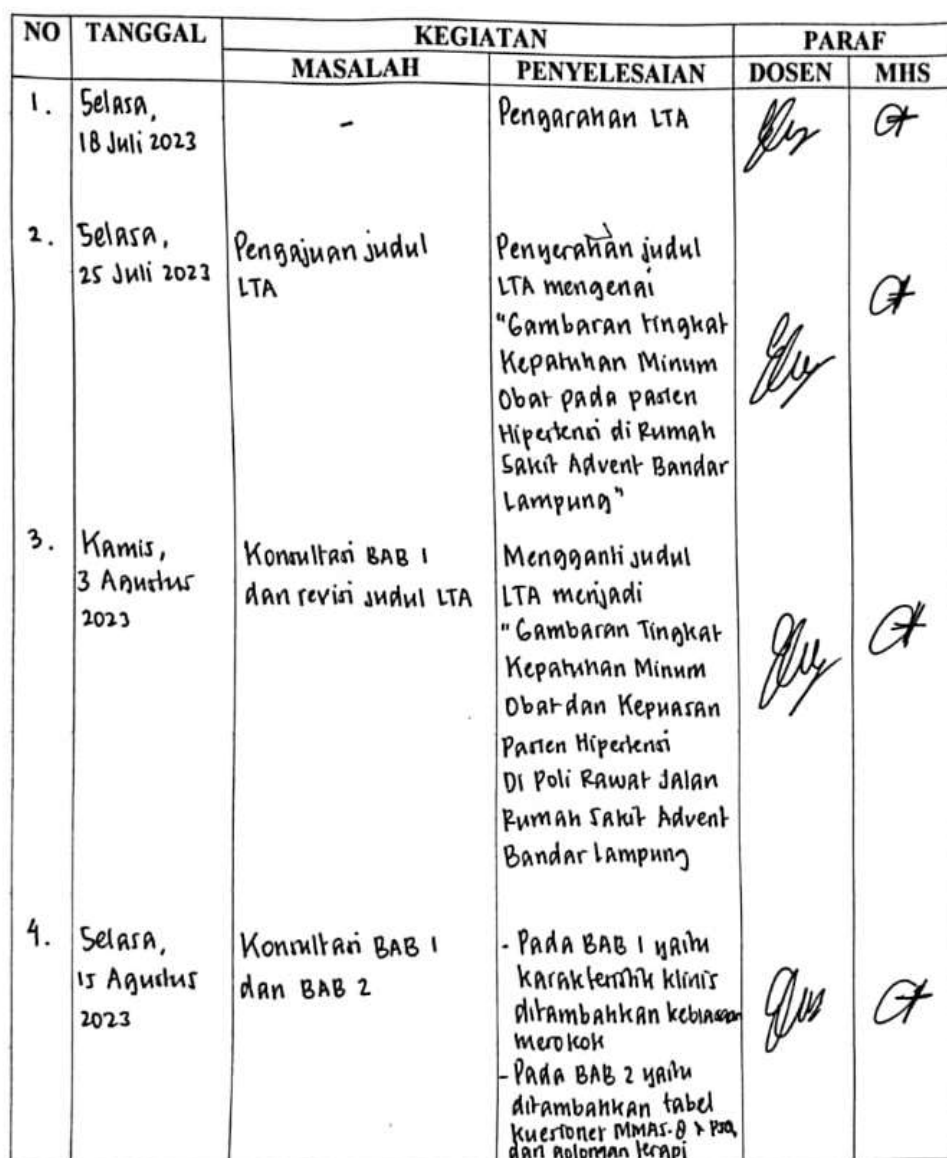 NO TANGGAL KEGIATAN PARAF
MASALAH PENYELESAIAN DOSEN MHS
1. Selasa,
18 Juli 2023
-
Pengarahan LTA
2. Selasa,
25 Juli 2023
Pengajuan judul
LTA
Penyerahan judul
LTA mengenai
"Gambaran tingkat
Kepatuhan Minum
Obat pada pasien
Hipertensi di Rumah
Sakit Advent Bandar
Lampung"
3. Kamis,
3 Agustus
2023
Konsultasi BAB 1
dan revisi judul LTA
Mengganti judul
LTA menjadi
"Gambaran Tingkat
Kepatuhan Minum
Obat dan Kepuasan
Pasien Hipertensi
Di Poli Rawat Jalan
Rumah Sakit Advent
Bandar Lampung
4. Selasa,
15 Agustus
2023
Konsultasi BAB 1
dan BAB 2
- Pada BAB 1 yaitu
karakteristik klinis
ditambahkan kebiasaan
merokok
- Pada BAB 2 yaitu
ditambahkan tabel
kuesioner MMAS-8
dan terapi